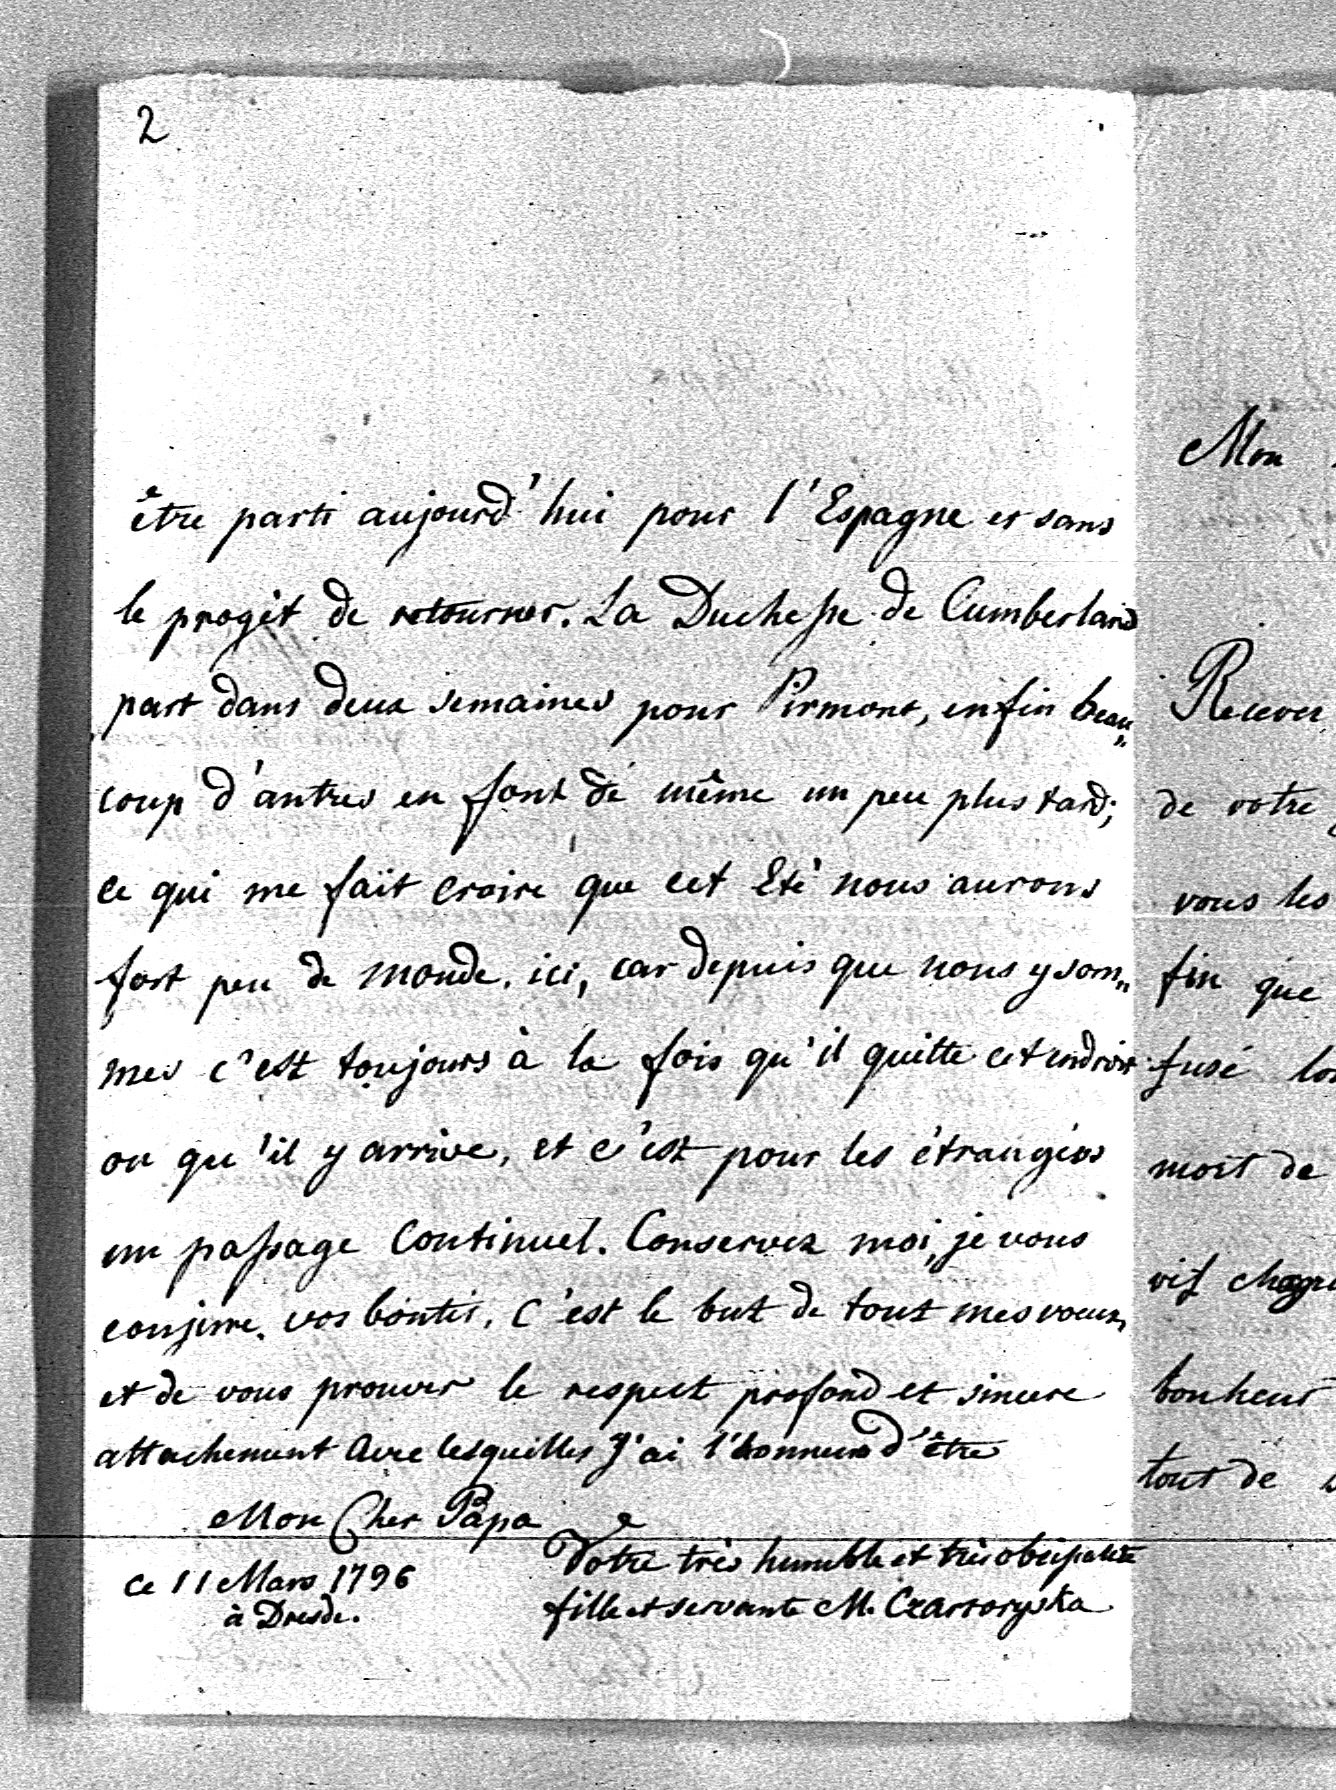 2
être parti aujourd'hui pour l'Espagne et sans
le progèt de retourner. La Duchesse de Cumberland
part dans deux semaines pour Pirmont, enfin beau„
coup d'autres en font dé même un peu plus tard;
ce qui me fait croire que cet Eté nous aurons
fort peu de monde ici, car depuis que nous y som„
mes c'est toujours à la fois qu'il quitte cet endroit
ou qu'il y arrive, et c'est pour les étrangérs
un passage Continuel. Conservez moi, je vous
conjure, vos bontés, C'est le but de tout mes vœux,
et de vous prouver le respect profond et sincere
attachement avec lesquelles J'ai l'honneur d'être
Mon Cher Papa
Votre très humble et très obeissante
fille et servante M. Czartoryska
ce 11 Mars 1796
à Dresde.
Mon
Recever
de votre
vous les
fin que
fusé
mort de
vif
bonheur
tout de